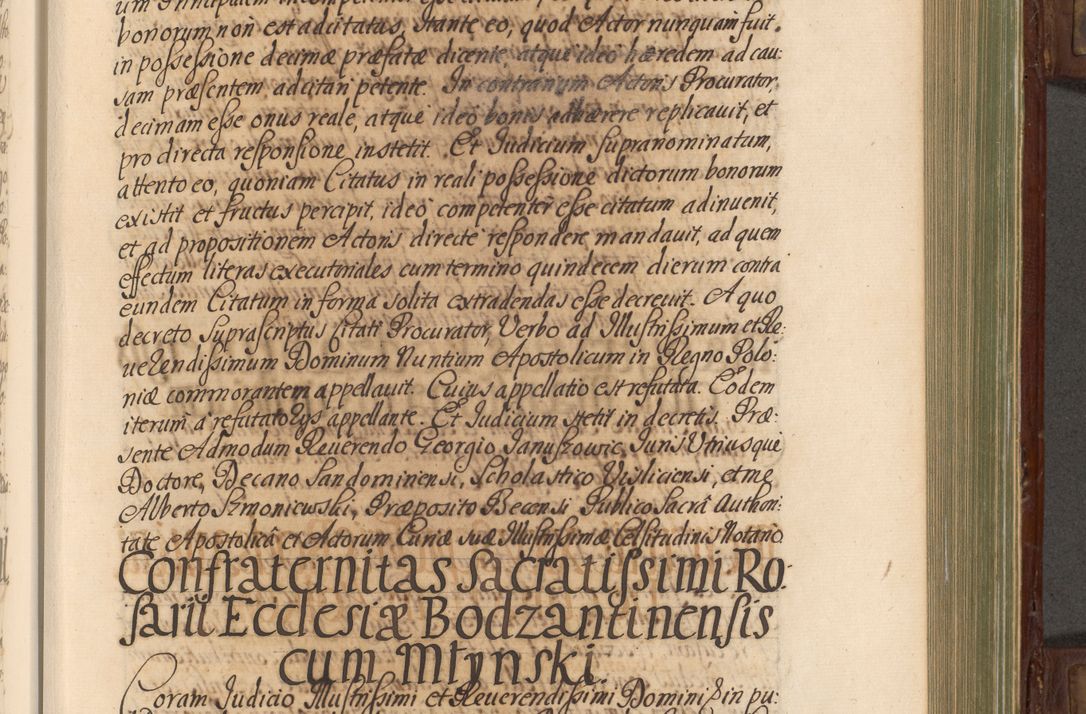 bonorum non est adcitatus, stante eo, quod Actor nunquam fuit
in possessione decimæ præfatæ dicente, atque ideo hæredem ad cau-
sam præsentem adcitari petente. In contrarium Actoris Procurator,
decimam esse onus reale, atque ideo bonis adhærere replicavit, et
pro directa responsione institit. Et Iudicium supranominatum,
attento eo, quoniam Citatus in reali possessione dictorum bonorum
existit et fructus percipit, ideo competenter esse citatum adinvenit,
et ad propositionem Actoris directe respondere mandavit, ad quem
effectum literas executoriales cum termino quindecem dierum contra
eundem Citatum in forma solita extradendas esse decrevit. A quo
decreto suprascriptus Citati Procurator, Verbo ad Illustrissimum et Re-
verendissimum Dominum Nuntium Apostolicum in Regno Polo-
niæ commorantem appellavit. Cuius appellatio est refutata. Eodem
iterum a refutatorys appellante. Et Iudicium stetit in decretis. Præ-
sente Admodum Reverendo Georgio Januszowic, Juris Utriusque
Doctore, Decano Sandominensi, Scholastico Visliciensi, et me
Alberto Szmoniewski, Præposito Becensi, Publico Sacrâ Authori-
tate Apostolicâ et Actorum Curiæ suæ Illustrissimæ Celsitudinis Notario
Confraternitas Sacratissimi Ro-
sarii Ecclesiæ Bodzantinensis
cum Młynski.
Coram Judicio Illustrissimi et Reverendissimi Domini & in pu-